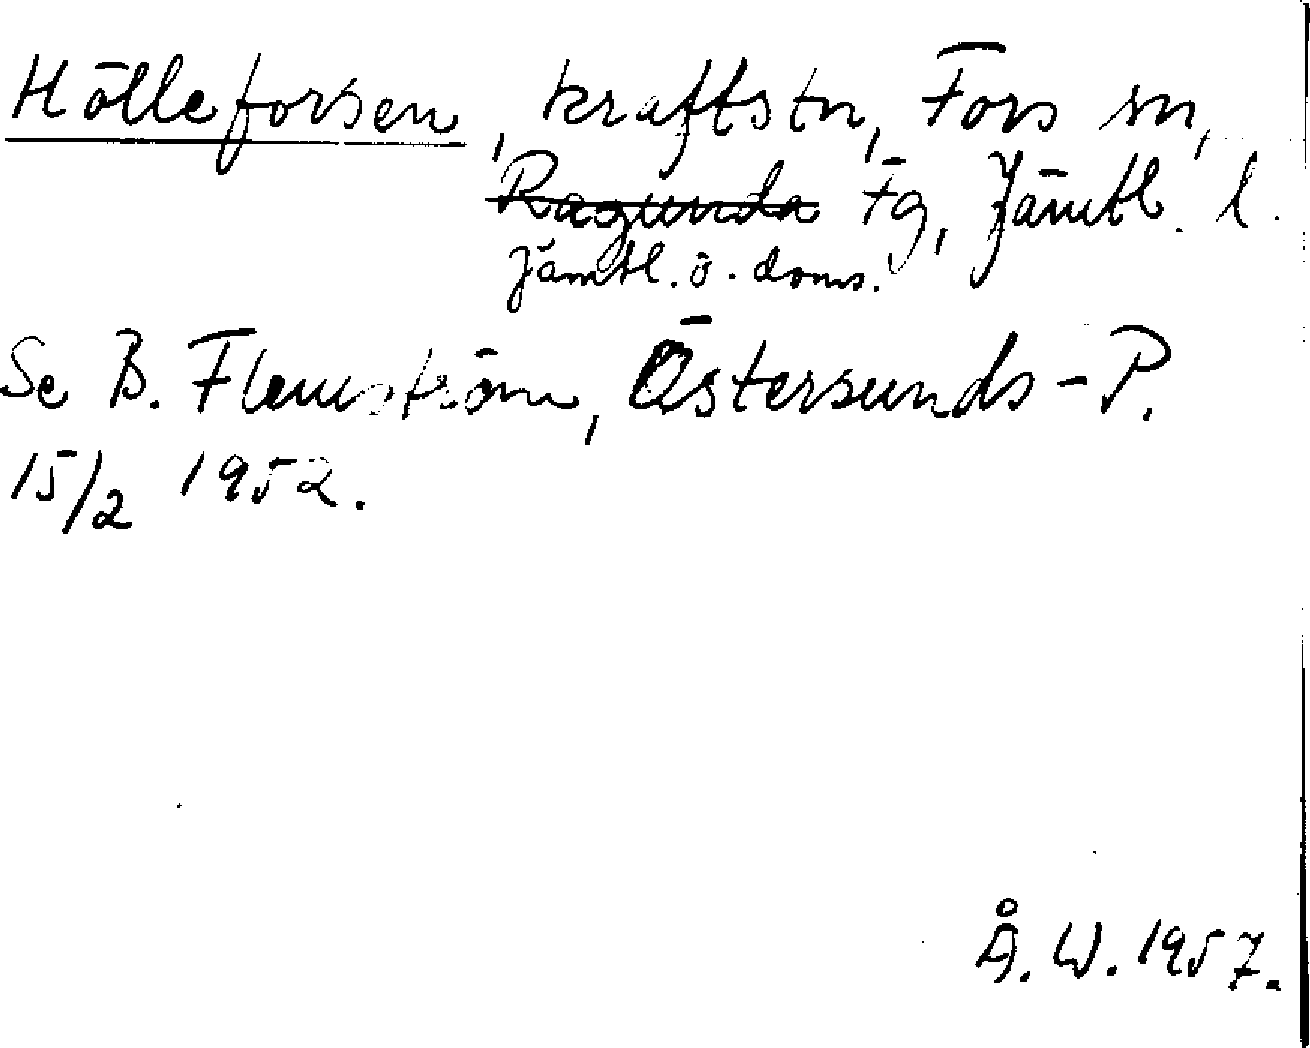 Hölleforsen, kraftstn, Fors sn,
Ragunda tg, Jämtl. l.
Jämtl. ö. doms.
Se B. Flemström, Östersunds-P.
15/2 1952.
Å. W. 1957.